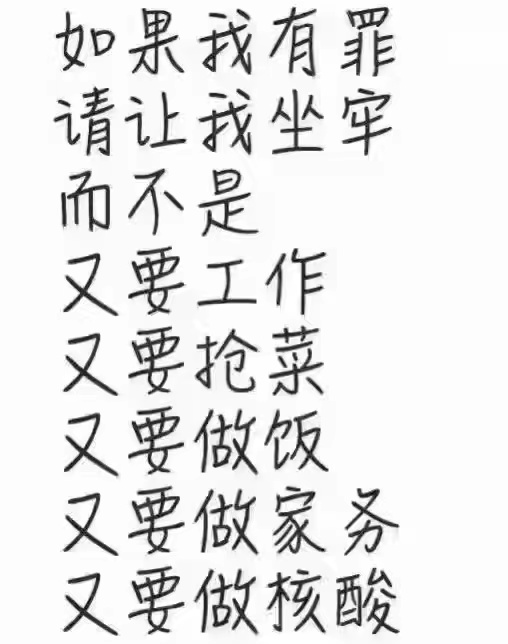 如果我有罪
请让我坐牢
而不是
又要工作
又要抢菜
又要做饭
又要做家务
又要做核酸